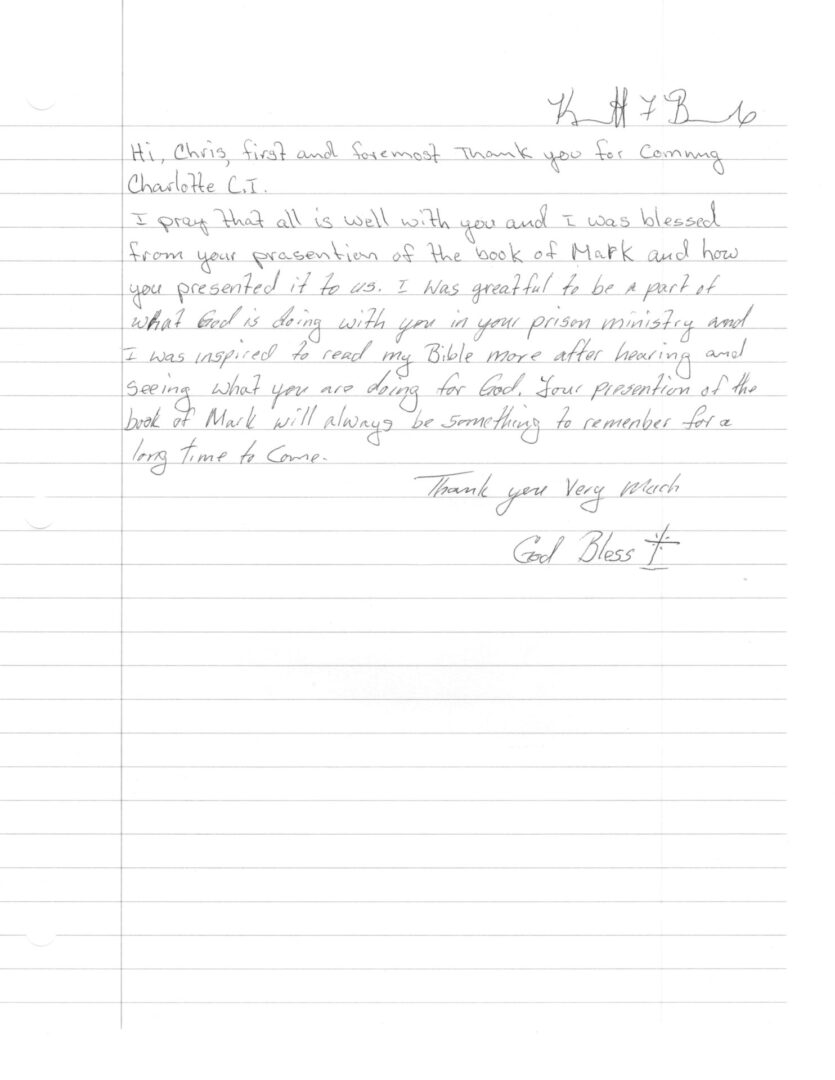 Hi, Chris, first and foremost Thank you for Comning
Charlotte C.I.
I pray that all is well with you and I was blessed
from your prasention of the book of Mark and how
you presented it to us. I was greatful to be a part of
what God is doing with you in your prison ministry and
I was inspired to read my Bible more after hearing and
seeing what you are doing for God. Your presention of the
book of Mark will always be something to remenber for a
long time to Come.
Thank you Very Mach
God Bless